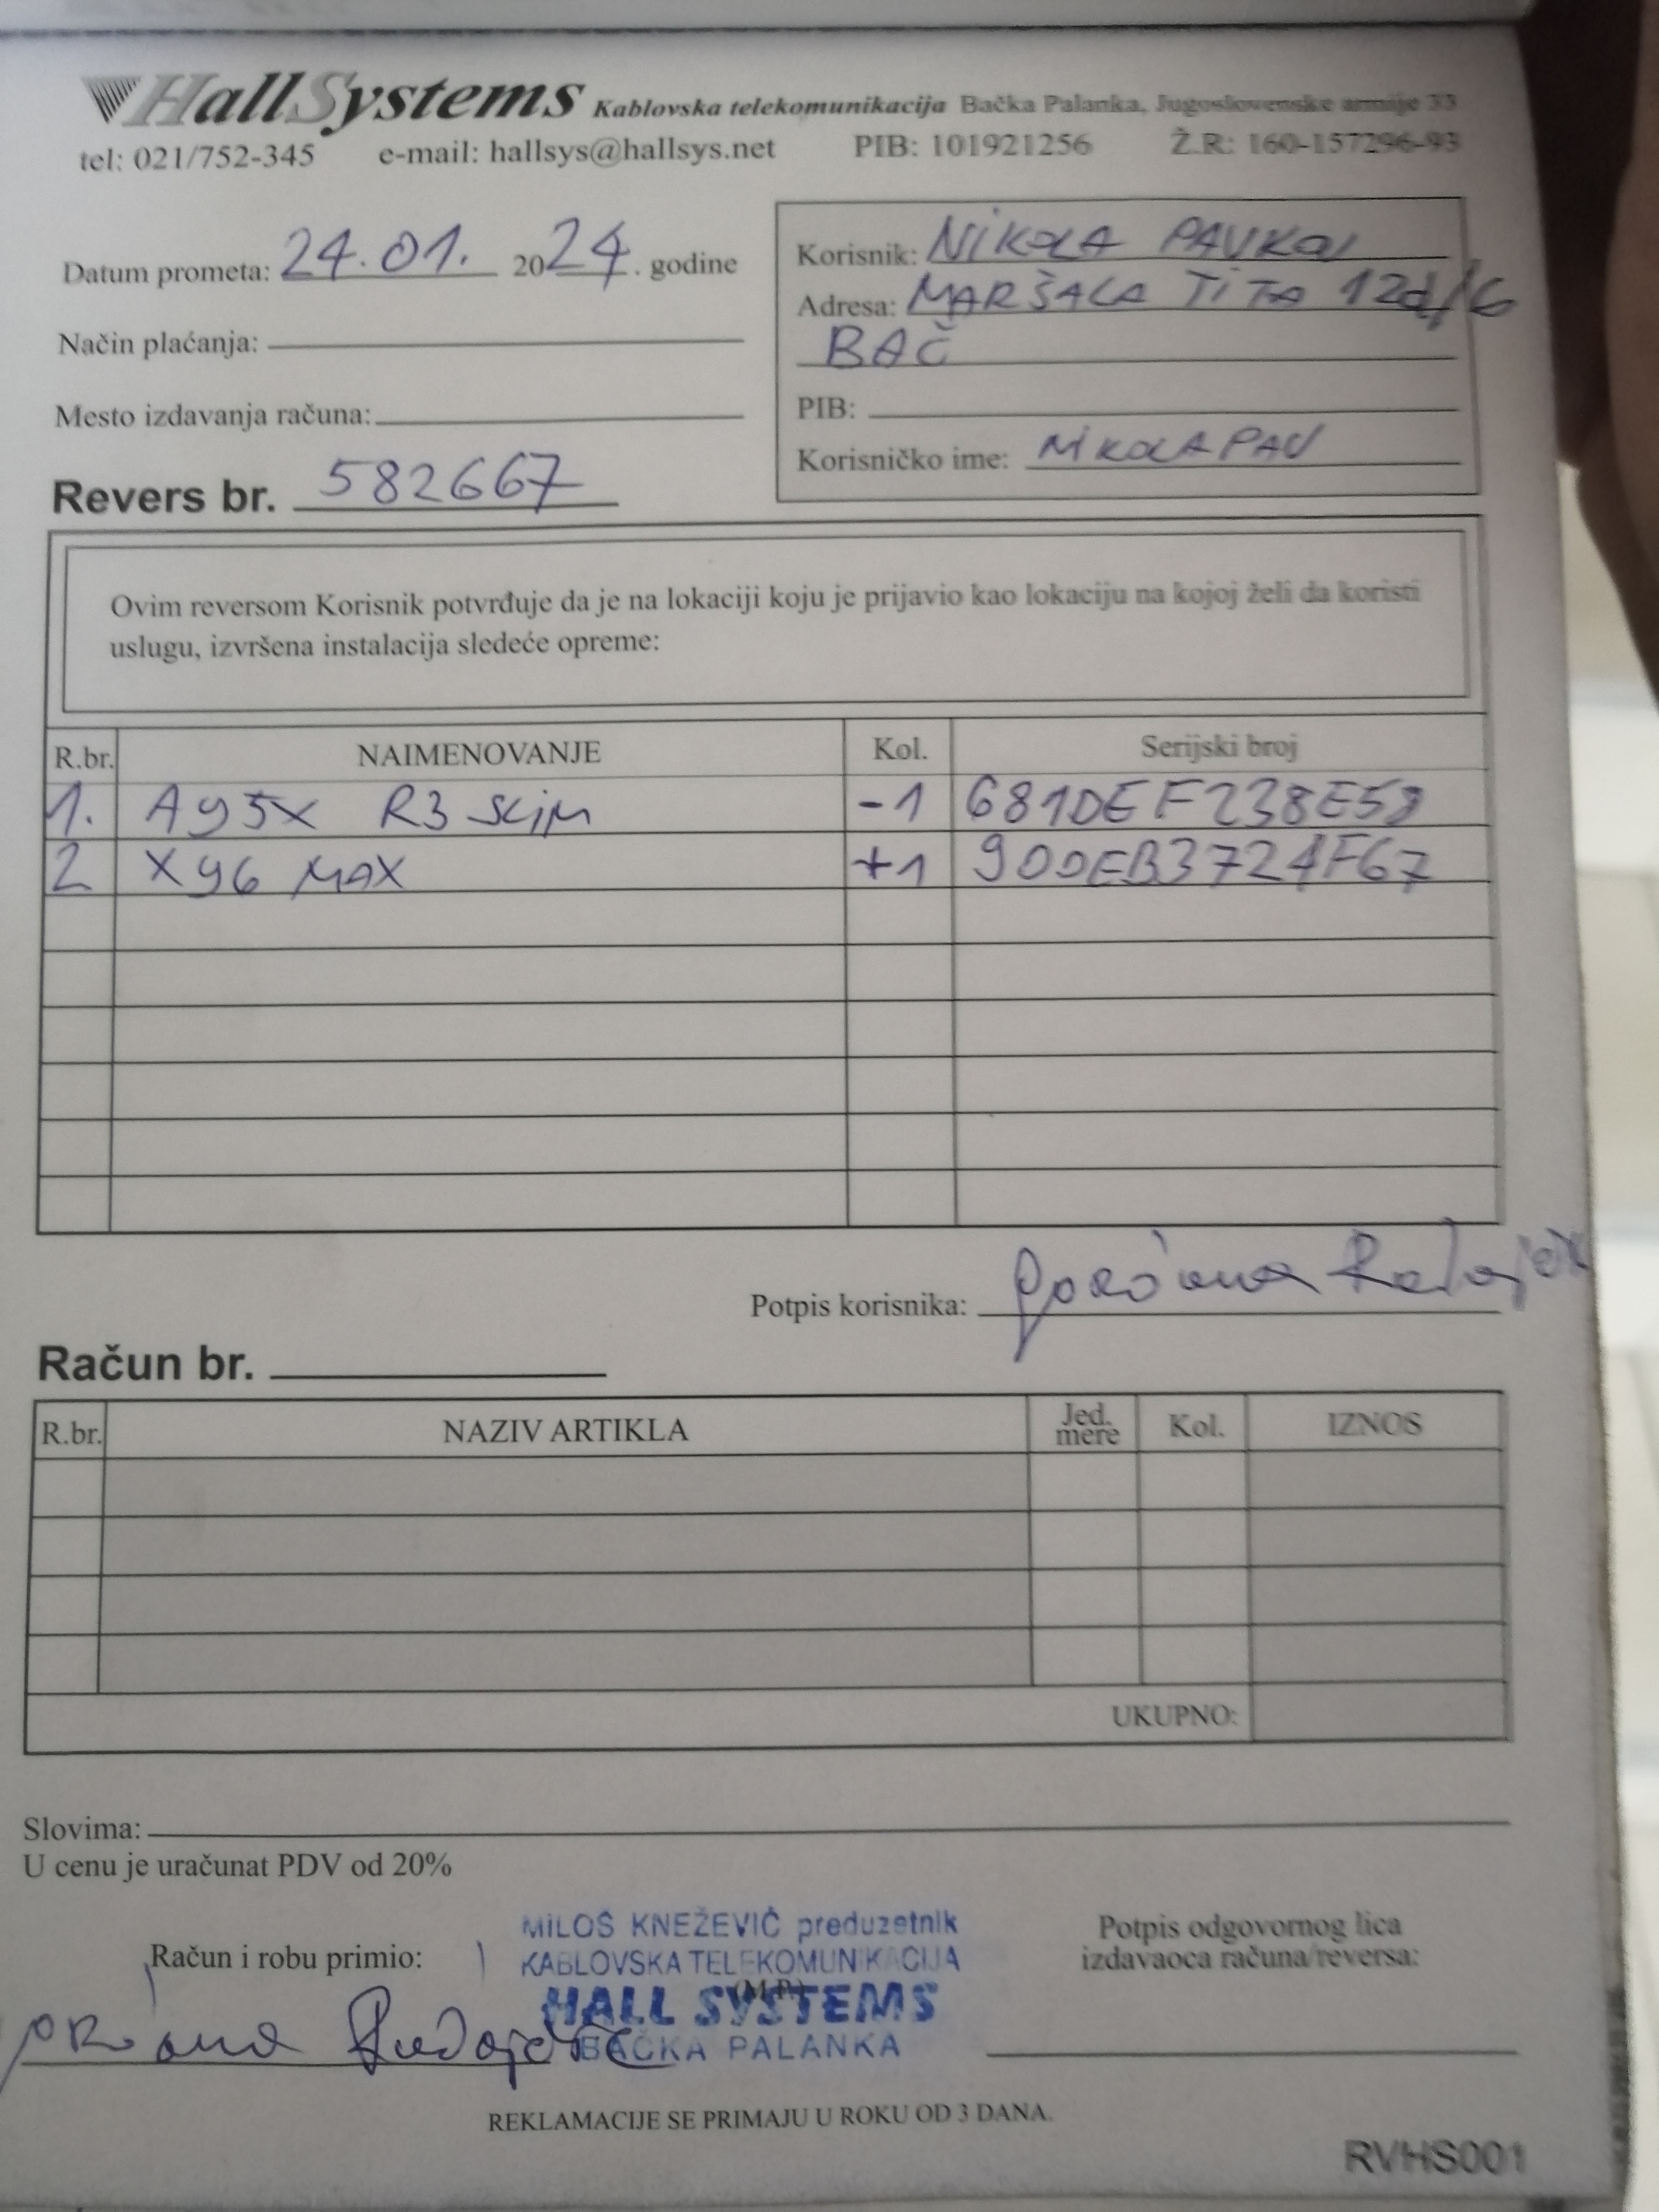 HallSystems Kablovska telekomunikacija Bačka Palanka, Jugoslovenske armije 33
tel: 021/752-345 e-mail: hallsys@hallsys.net PIB: 101921256 Ž.R: 160-157296-93
Datum prometa: 24.01. 2024. godine
Način plaćanja:
Mesto izdavanja računa:
Revers br. 582667
Korisnik: NIKOLA
Adresa: MARŠALA TITA 12d/6
BAČ
PIB:
Korisničko ime: NIKOLAPAV
Ovim reversom Korisnik potvrđuje da je na lokaciji koju je prijavio kao lokaciju na kojoj želi da koristi
uslugu, izvršena instalacija sledeće opreme:
R.br. NAIMENOVANJE Kol. Serijski broj
1. A95X R3 SLIM -1
2 X96 MAX +1 900EB3724F67
Potpis korisnika:
Račun br.
R.br. NAZIV ARTIKLA Jed. mere Kol. IZNOS
UKUPNO:
Slovima:
U cenu je uračunat PDV od 20%
Račun i robu primio:
MILOŠ KNEŽEVIĆ preduzetnik
KABLOVSKA TELEKOMUNIKACIJA
(M.P.)
HALL SYSTEMS
BAČKA PALANKA
Potpis odgovornog lica
izdavaoca računa/reversa:
REKLAMACIJE SE PRIMAJU U ROKU OD 3 DANA.
RVHS001